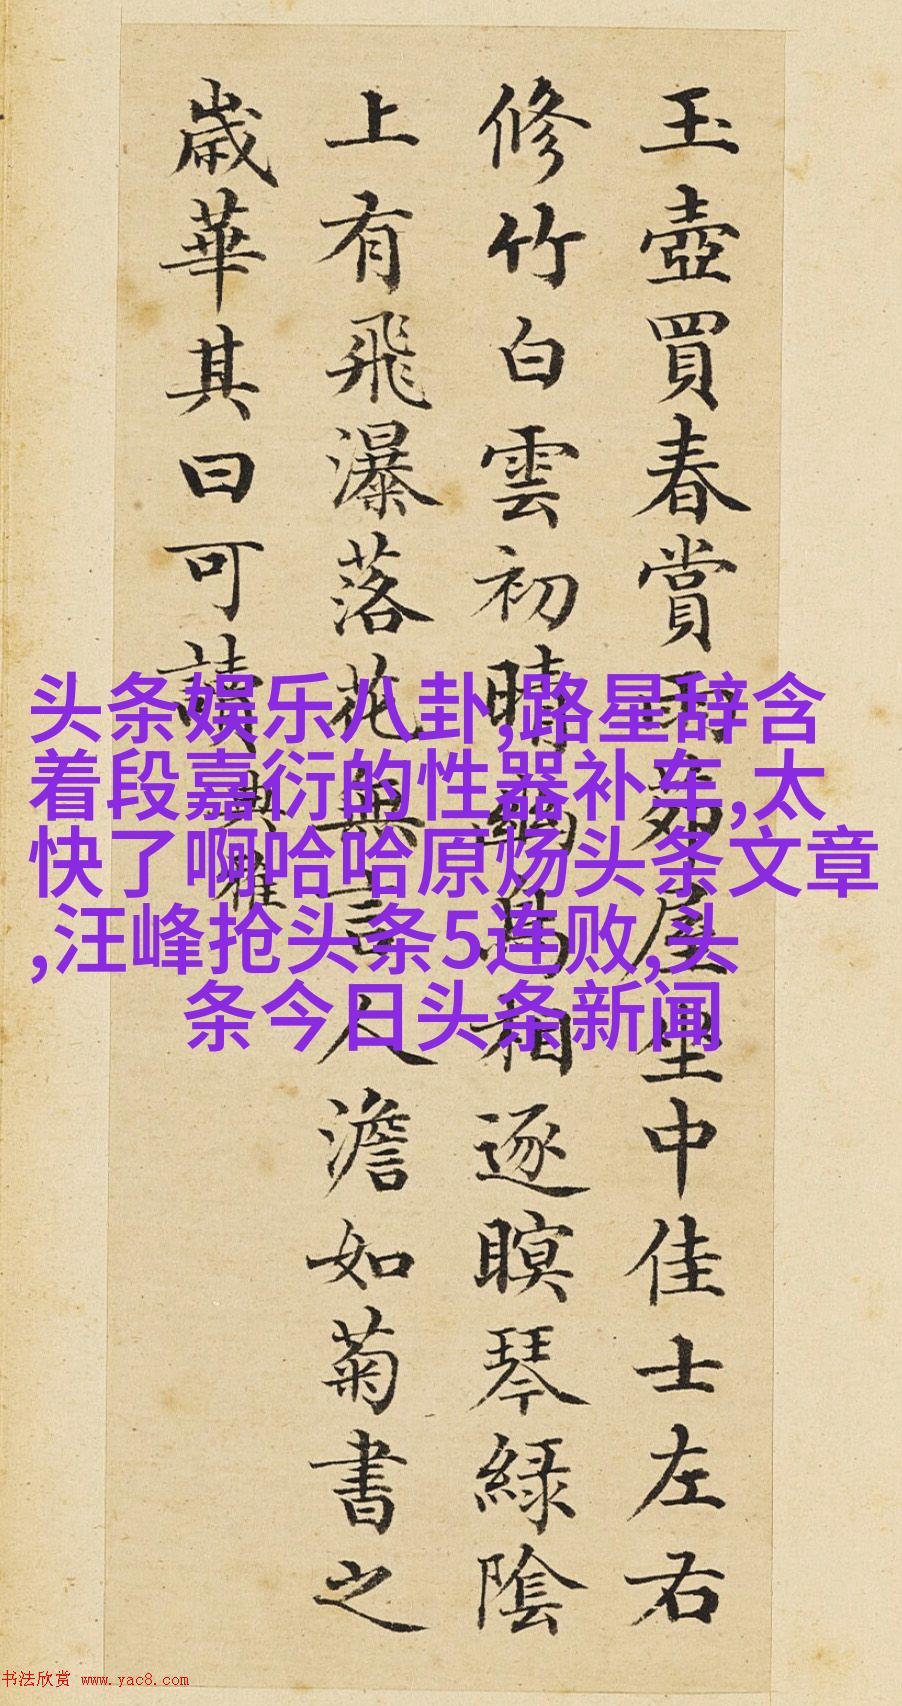 玉壺買春賞雨茆屋坐中佳士左右
修竹白雲初晴幽鳥相逐瞑琴綠陰
上有飛瀑落花無言人澹如菊書之
歲華其曰可讀 典雅
头条娱乐八卦,路星辞含
着段嘉衍的性器补车,太
快了啊哈哈原炀头条文章
,汪峰抢头条5连败,头
条今日头条新闻
书法欣赏 www.yac8.com